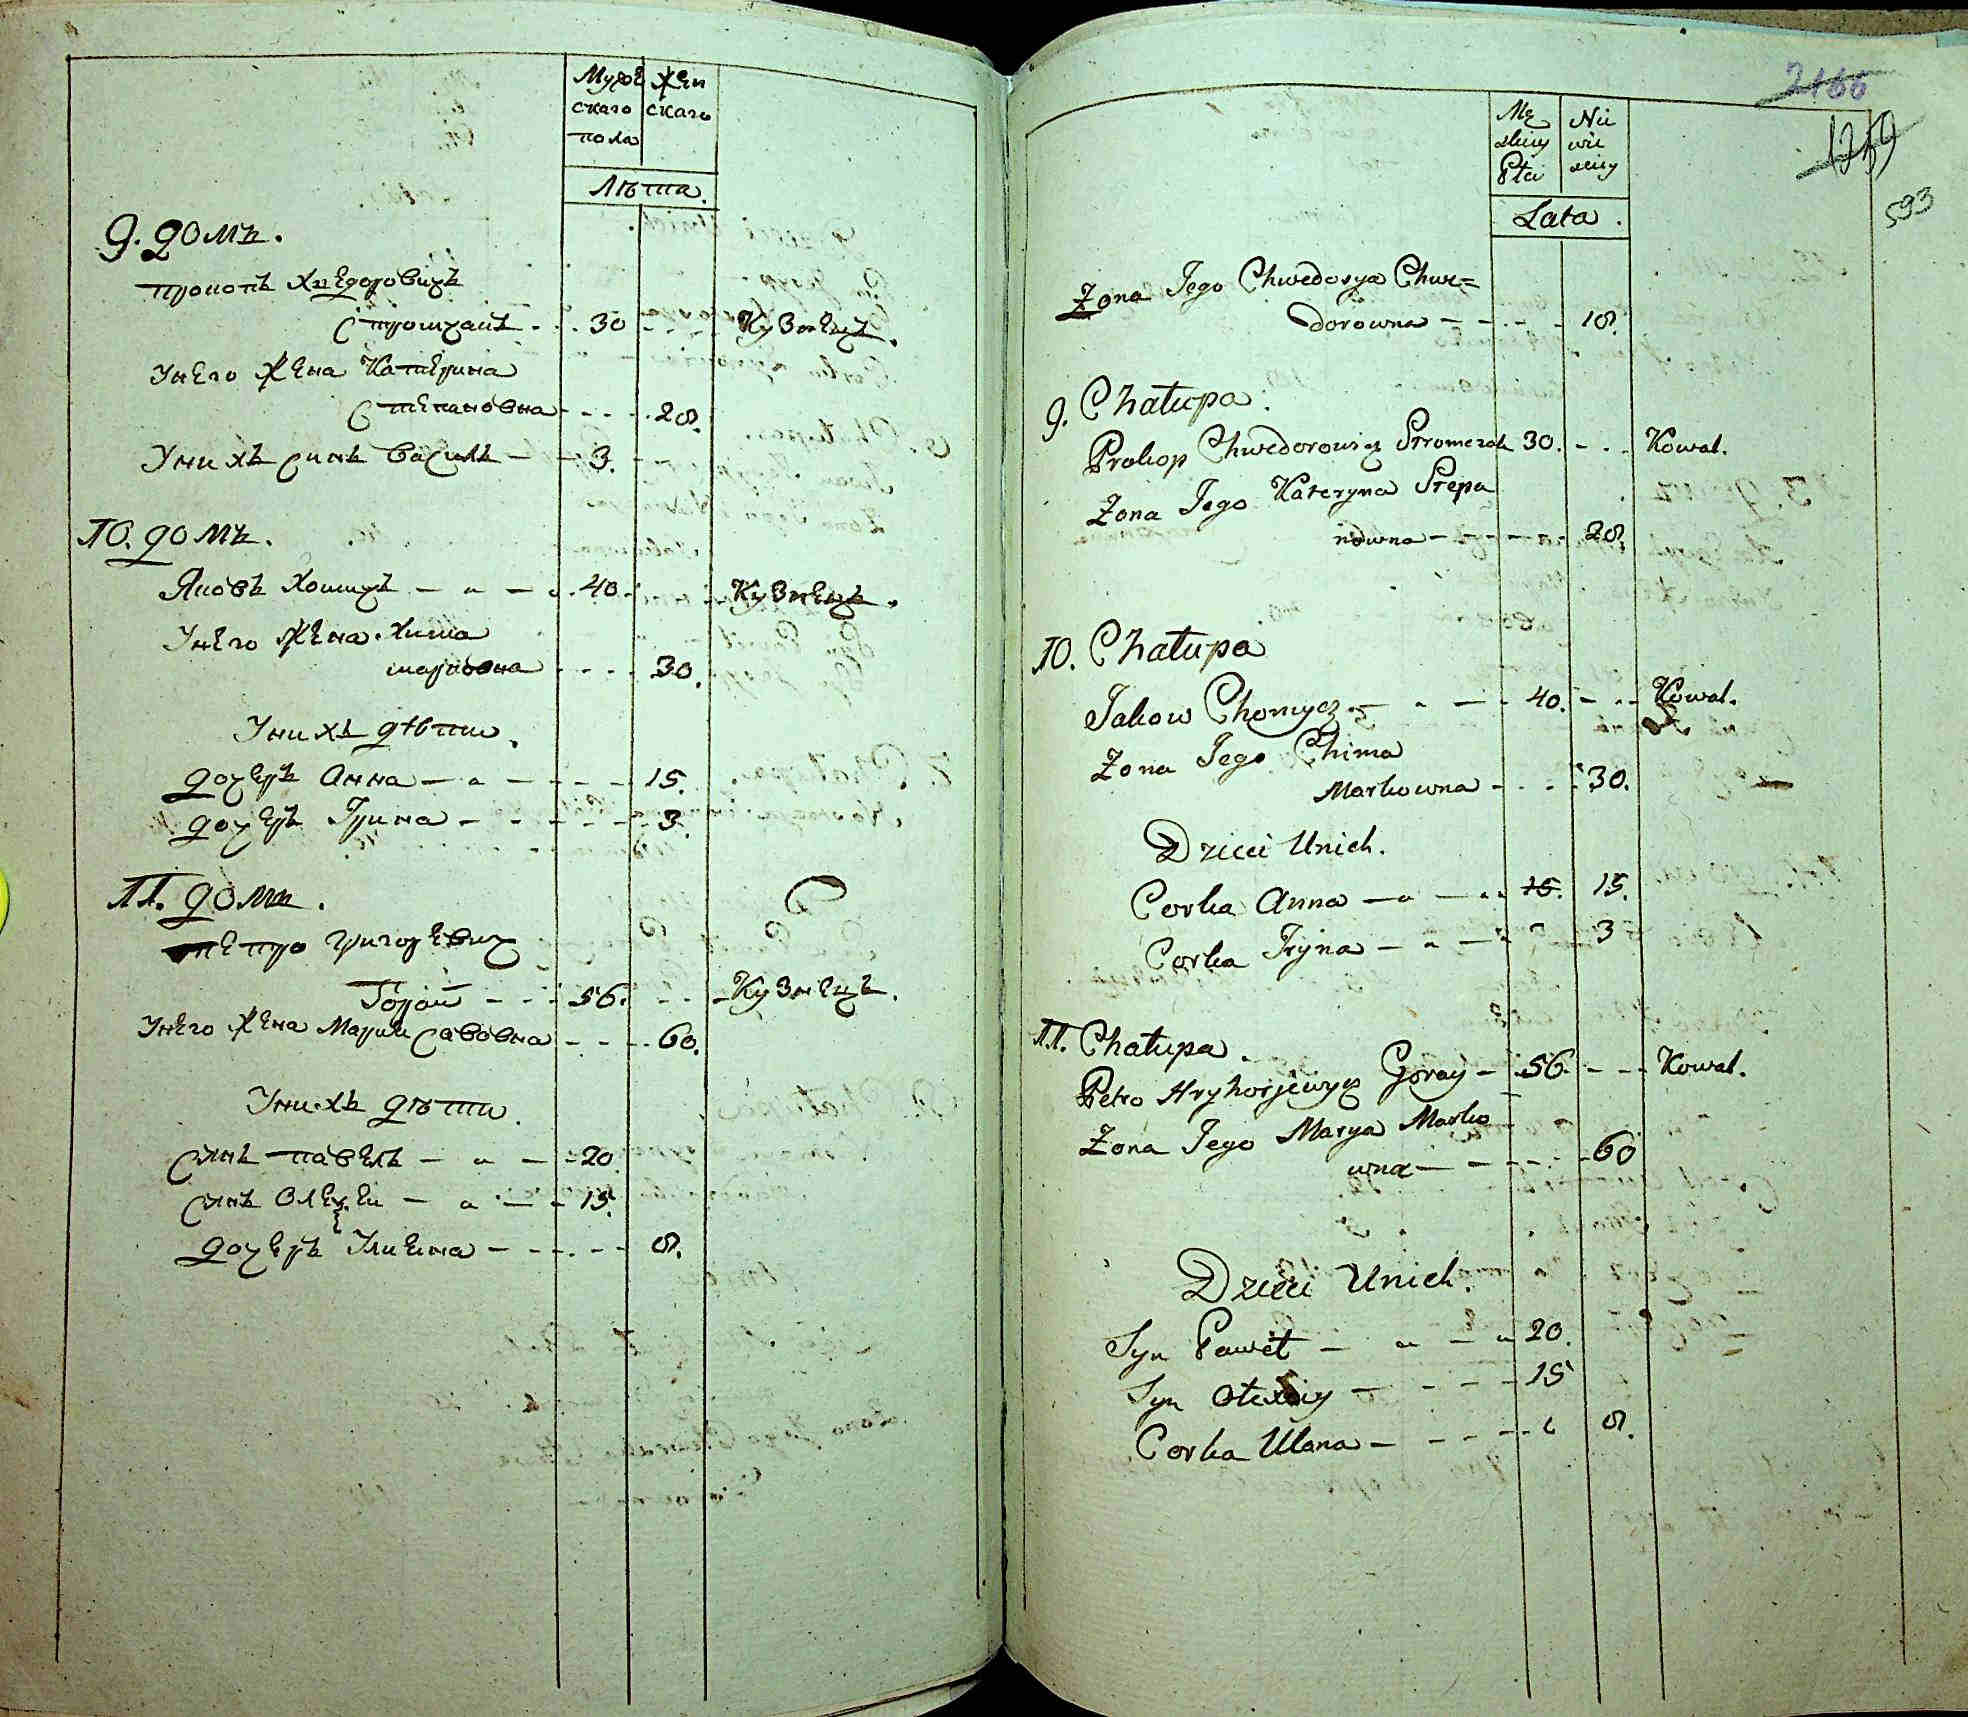 Мужe Жен
скаго скаго
пола
Лѣта.
9. домъ.
Прокопъ Хведоровичъ
Стромчакъ - - 30 - - - Кузнецъ.
Унего жена Катерина
Степановна - - - 28.
Унихъ синъ Василь - - 3.
10. домъ.
Яковъ Хомичъ - " - 40. Кузнецъ.
Унего жена Хима
марковна - - - - 30.
Унихъ дѣти.
дочеръ Анна - " - - - - 15.
дочеръ Ірина - - - - - - 3.
11. домъ.
Петро Григоревич
Горай - - - 56. - - - Кузнецъ.
Унего жена Мария Савовна - - - 60.
Унихъ дѣти.
Синъ Павелъ - " - - 20.
Синъ Олексеи - " - - 15.
дочеръ Улияна - - - - - 8.
2166
1259
593
Mę Nie
skiey wie
Płci skiey
Lata.
Żona Jego Chwedosya Chwe=
dorowna - - - - - 18.
9. Chałupa.
Prokop Chwedorowicz Stromczak 30. - - - Kowal.
Żona Jego Kateryna Stepa
nowna - - - - - - 28.
10. Chałupa
Jakow Chomycz - " - - 40. - - - Kowal.
Żona Jego Chima
Markowna - - - - 30.
Dzieci Unich.
Corka Anna - " - " 15. 15.
Corka Iryna - " - " 3
11. Chałupa.
Petro Hryhorjewycz Goray - 56. - - - Kowal.
Żona Jego Marya Marko
wna - - - - - - 60
Dzieci Unich.
Syn Paweł - " - " 20.
Syn Ołexiy - - - - - 15
Corka Ulana - - - - - 8.